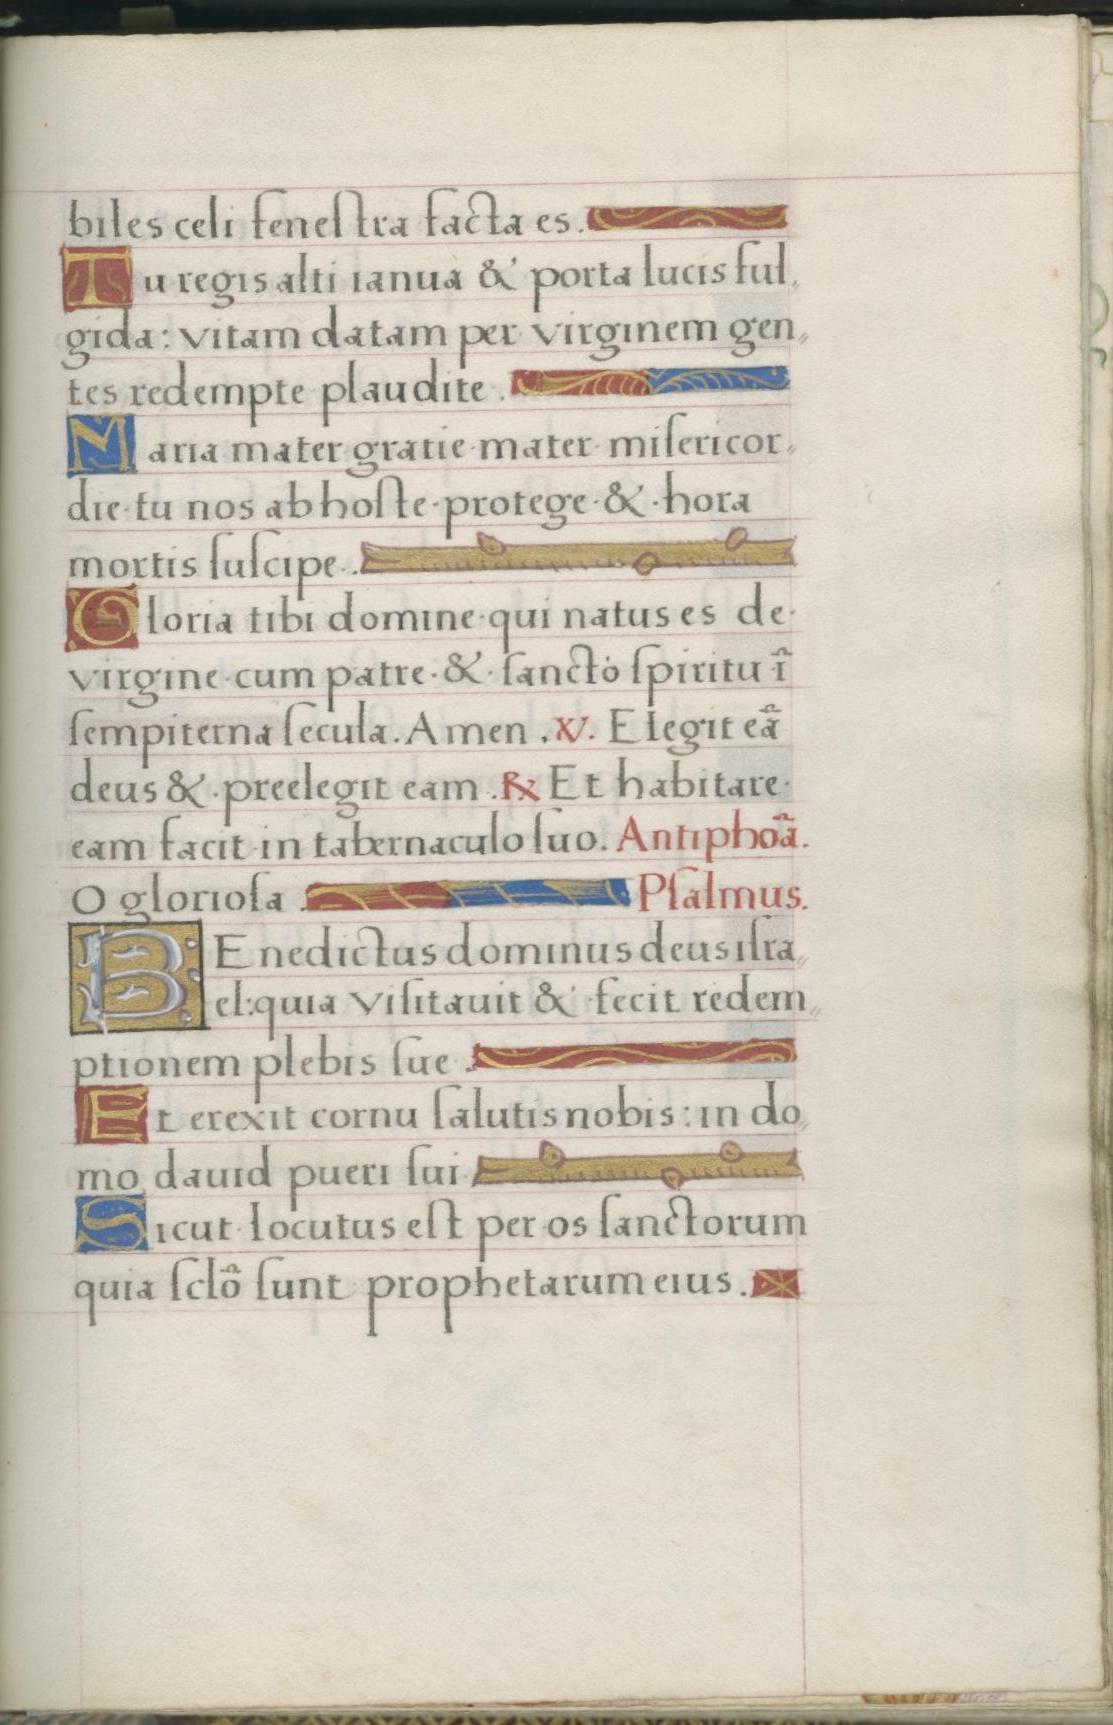 biles celi feneſtra facta es.
Tu regis alti ianua & porta lucis ful,
gida: vitam datam per virginem gen,,
tes redempte plaudite.
Maria mater gratie mater miſericor,,
die tu nos ab hoſte·protege·&·hora
mortis ſuſcipe.
Gloria tibi domine·qui natus es de·
virgine·cum patre·&·ſancto ſpiritu·ĩ
ſempiterna ſecula. Amen. ꝟ. Elegit eã
deus &·preelegit eam. ℞ Et habitare·
eam facit in tabernaculo ſuo. Antiphoã.
O glorioſa. Pſalmus.
BEnedictus dominus deus iſra,,
el:quia viſitauit & fecit redem,,
ptionem plebis ſue.
Et erexit cornu ſalutis nobis: in do,,
mo dauid pueri ſui.
Sicut locutus eſt per os ſanctorum
quia ſclõ ſunt prophetarum eius.